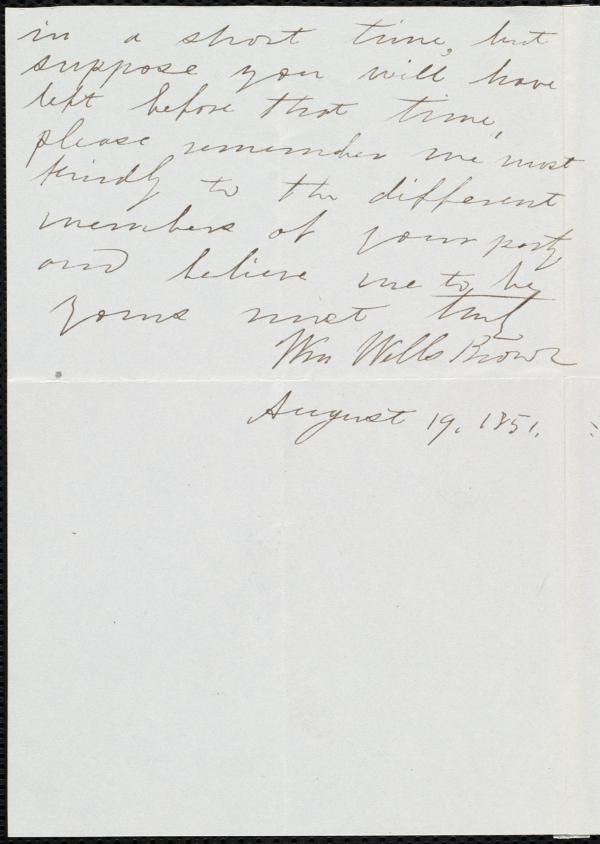 in a short time, but
suppose you will have
left before that time,
please remember me most
kindly to the different
members of your party
and believe me to be
yours most truly
Wm Wells Brown
August 19, 1851.